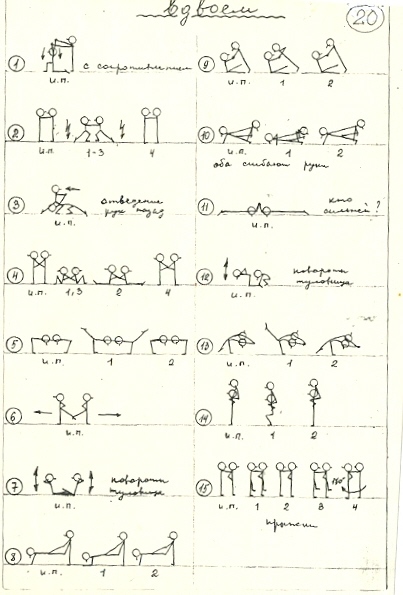 вдвоем
20
1
с сопротивлением
и.п.
2
и.п. 1-3 4
3
отведение
рук назад
и.п.
4
и.п. 1,3 2 4
5
и.п. 1 2
6
и.п.
7
повороты
туловища
и.п.
8
и.п. 1 2
9
и.п. 1 2
10
и.п. 1 2
оба сгибают руки
11
кто
сильней?
и.п.
12
повороты
туловища
и.п.
13
и.п. 1 2
14
и.п. 1 2
15
180°
и.п. 1 2 3 4
прыжки